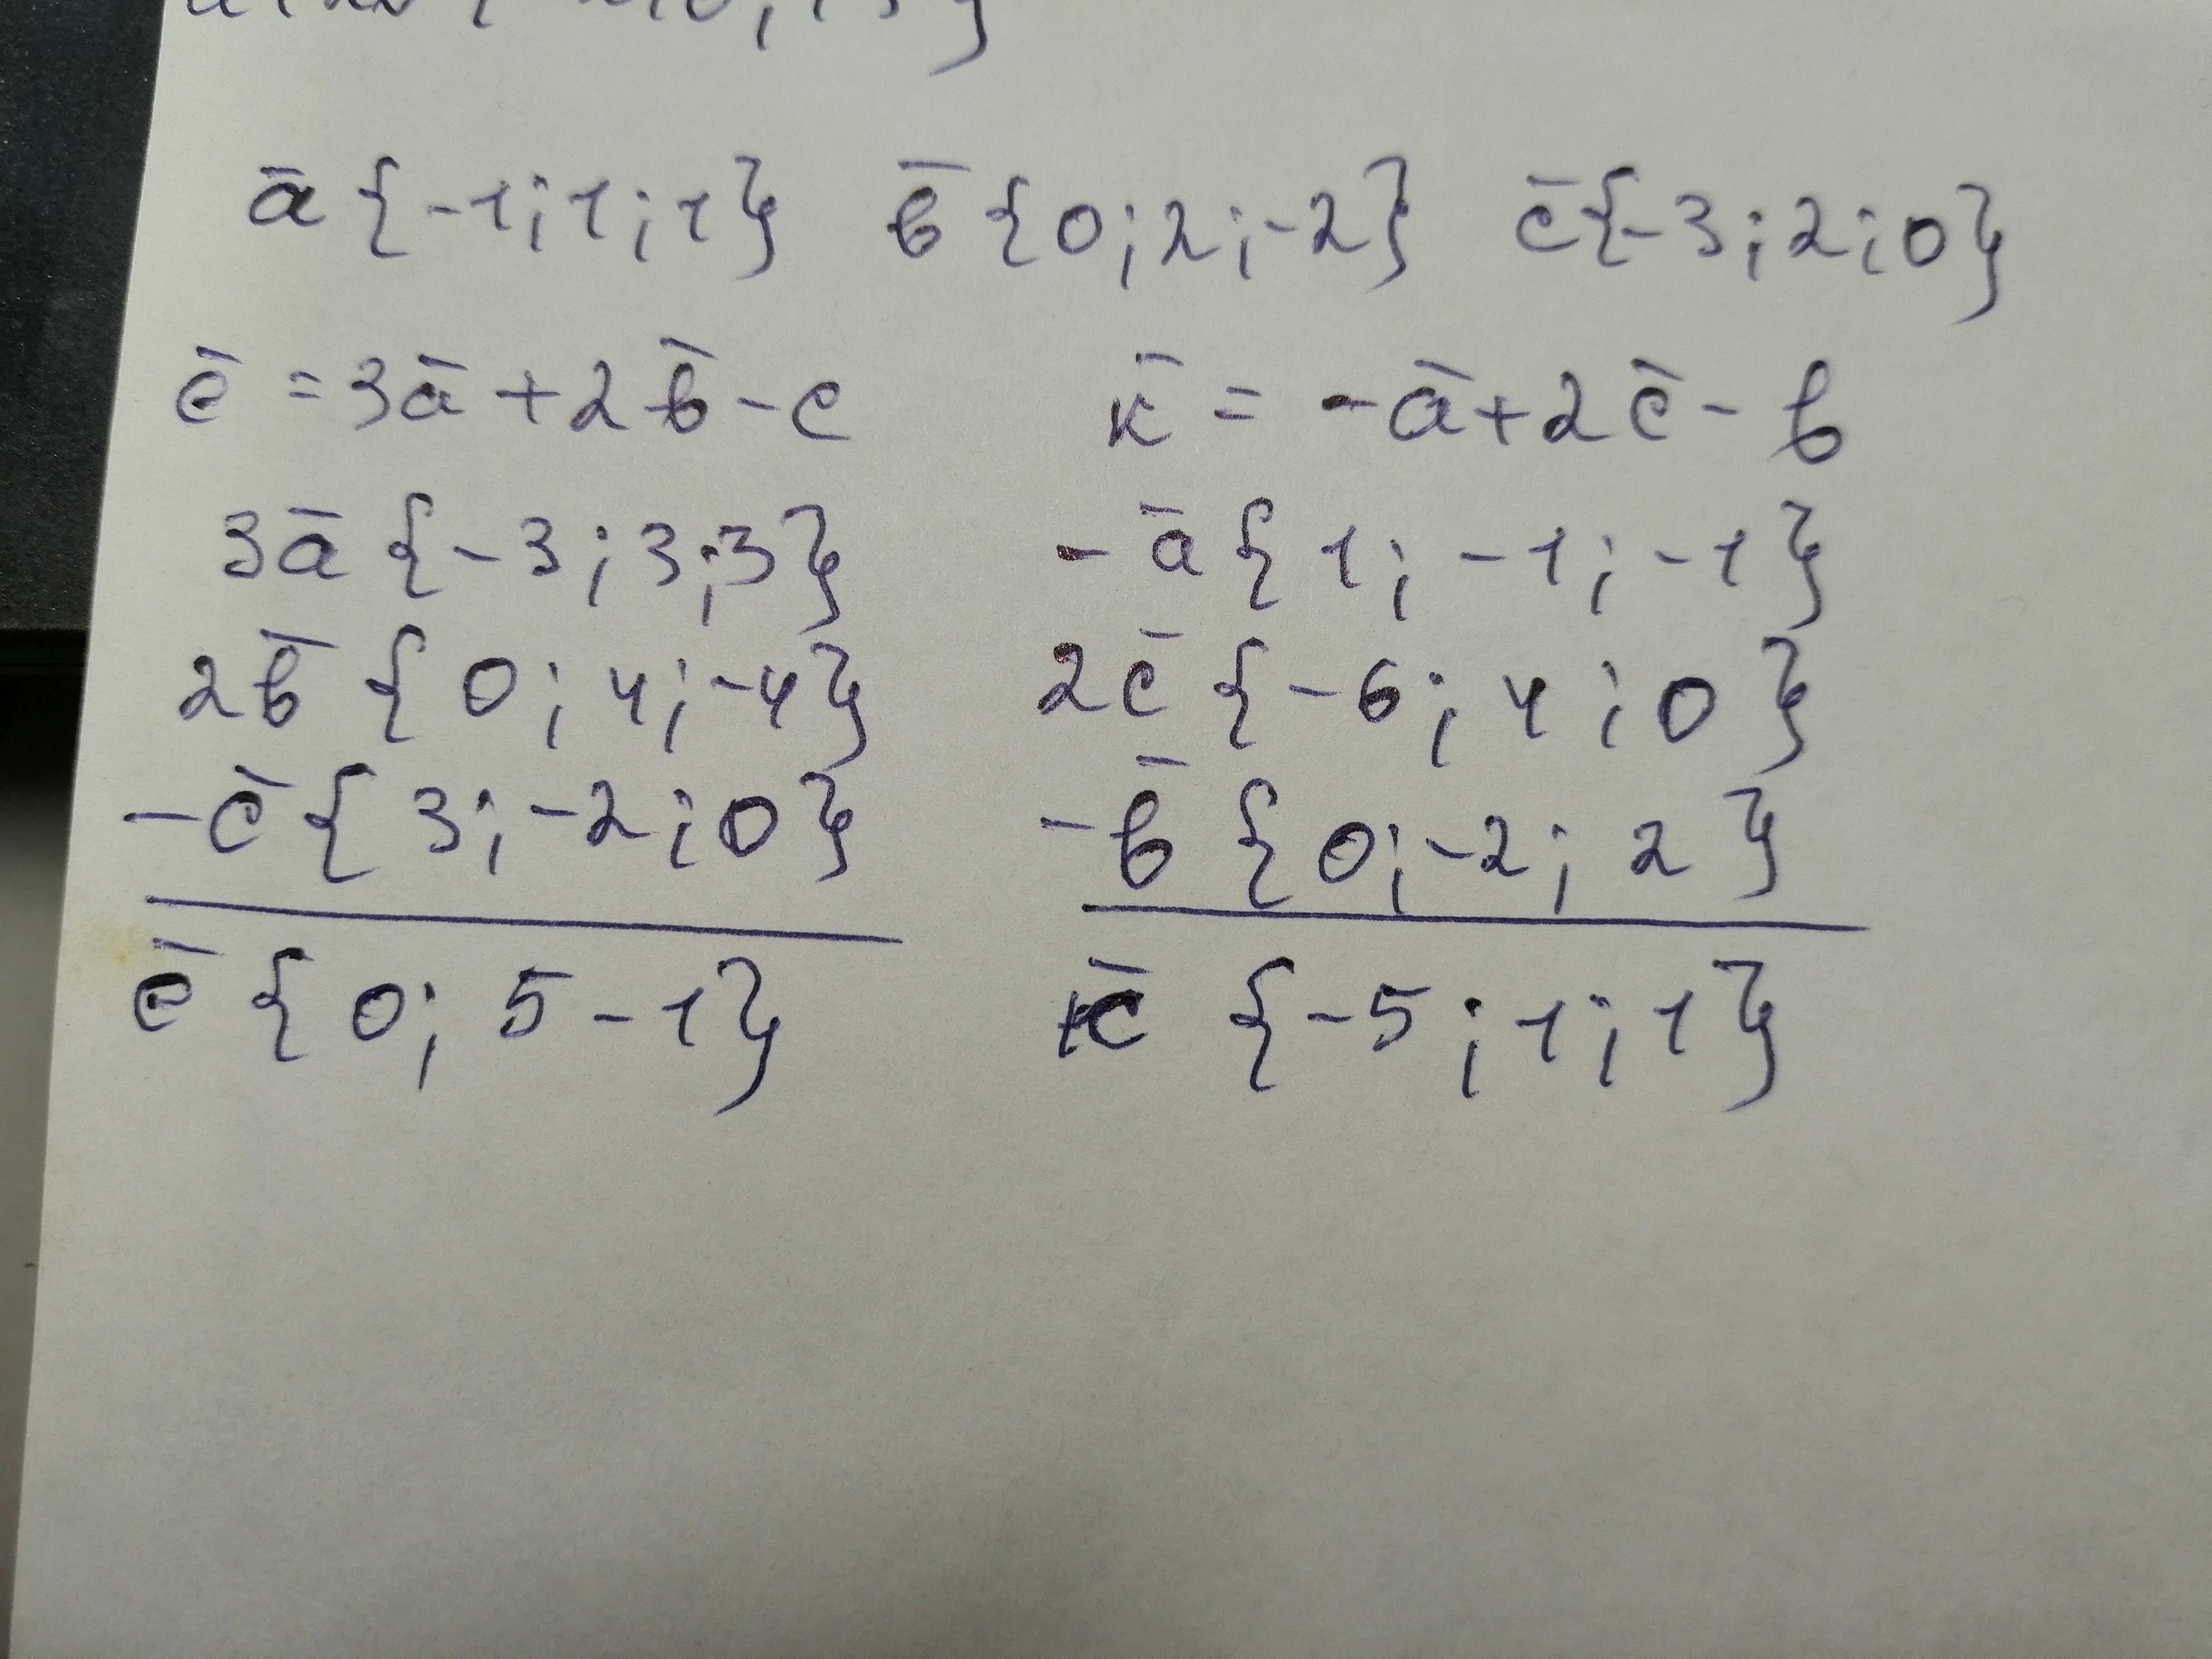 ā {-1; 1; 1} b̄ {0; 2; -2} c̄ {-3; 2; 0}
ē = 3ā + 2b̄ - c k̄ = -ā + 2c̄ - b
3ā {-3; 3; 3} -ā {1; -1; -1}
2b̄ {0; 4; -4} 2c̄ {-6; 4; 0}
-c̄ {3; -2; 0} -b̄ {0; -2; 2}
ē {0; 5 -1} k̄ {-5; 1; 1}